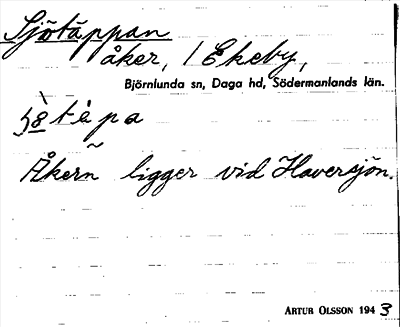 Sjötäppan
åker, 1 Ekeby,
Björnlunda sn, Daga hd, Södermanlands län.
Åkern ligger vid Haversjön.
ARTUR OLSSON 1943